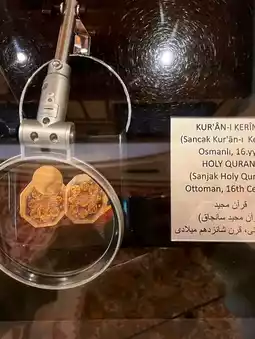 KUR'ÂN-I KERÎM
(Sancak Kur'ân-ı Ke
Osmanlı, 16.yy
HOLY QURAN
(Sanjak Holy Qur
Ottoman, 16th Ce
قرآن مجيد
قرآن مجيد سانجاق)
قرن شانزدهم ميلادى